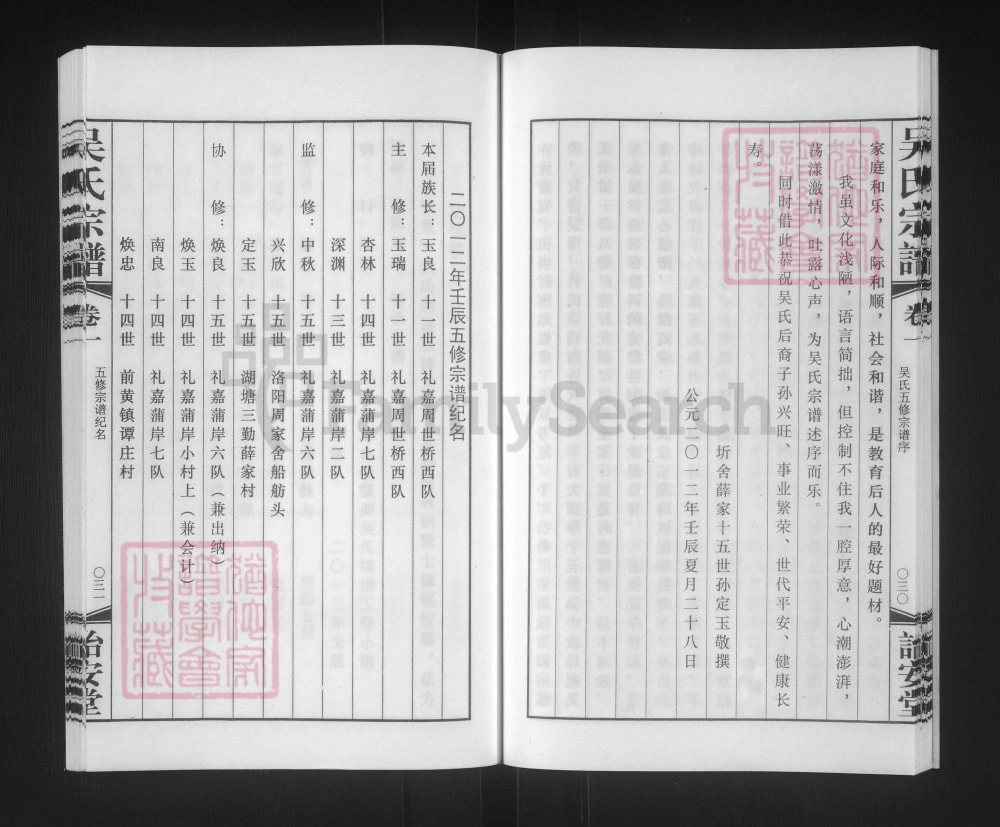 吴氏宗谱
卷一
吴氏五修宗谱序
〇三〇
诒安堂
家庭和乐，人际和顺，社会和谐，是教育后人的最好题材。
我虽文化浅陋，语言简拙，但控制不住我一腔厚意，心潮澎湃，
荡漾激情，吐露心声，为吴氏宗谱述序而乐。
同时借此恭祝吴氏后裔子孙兴旺、事业繁荣、世代平安、健康长
寿。
圻舍薛家十五世孙定玉敬撰
公元二〇一二年壬辰夏月二十八日
二〇一二年壬辰五修宗谱纪名
本届族长：玉良 十一世 礼嘉周世桥西队
主 修：玉瑞 十一世 礼嘉周世桥西队
杏林 十四世 礼嘉蒲岸七队
深渊 十三世 礼嘉蒲岸二队
监 修：中秋 十五世 礼嘉蒲岸六队
兴欣 十五世 洛阳周家舍船舫头
定玉 十五世 湖塘三勤薛家村
协 修：焕良 十五世 礼嘉蒲岸六队（兼出纳）
焕玉 十四世 礼嘉蒲岸小村上（兼会计）
南良 十四世 礼嘉蒲岸七队
焕忠 十四世 前黄镇谭庄村
吴氏宗谱
卷一
五修宗谱纪名
〇三一
诒安堂
FamilySearch